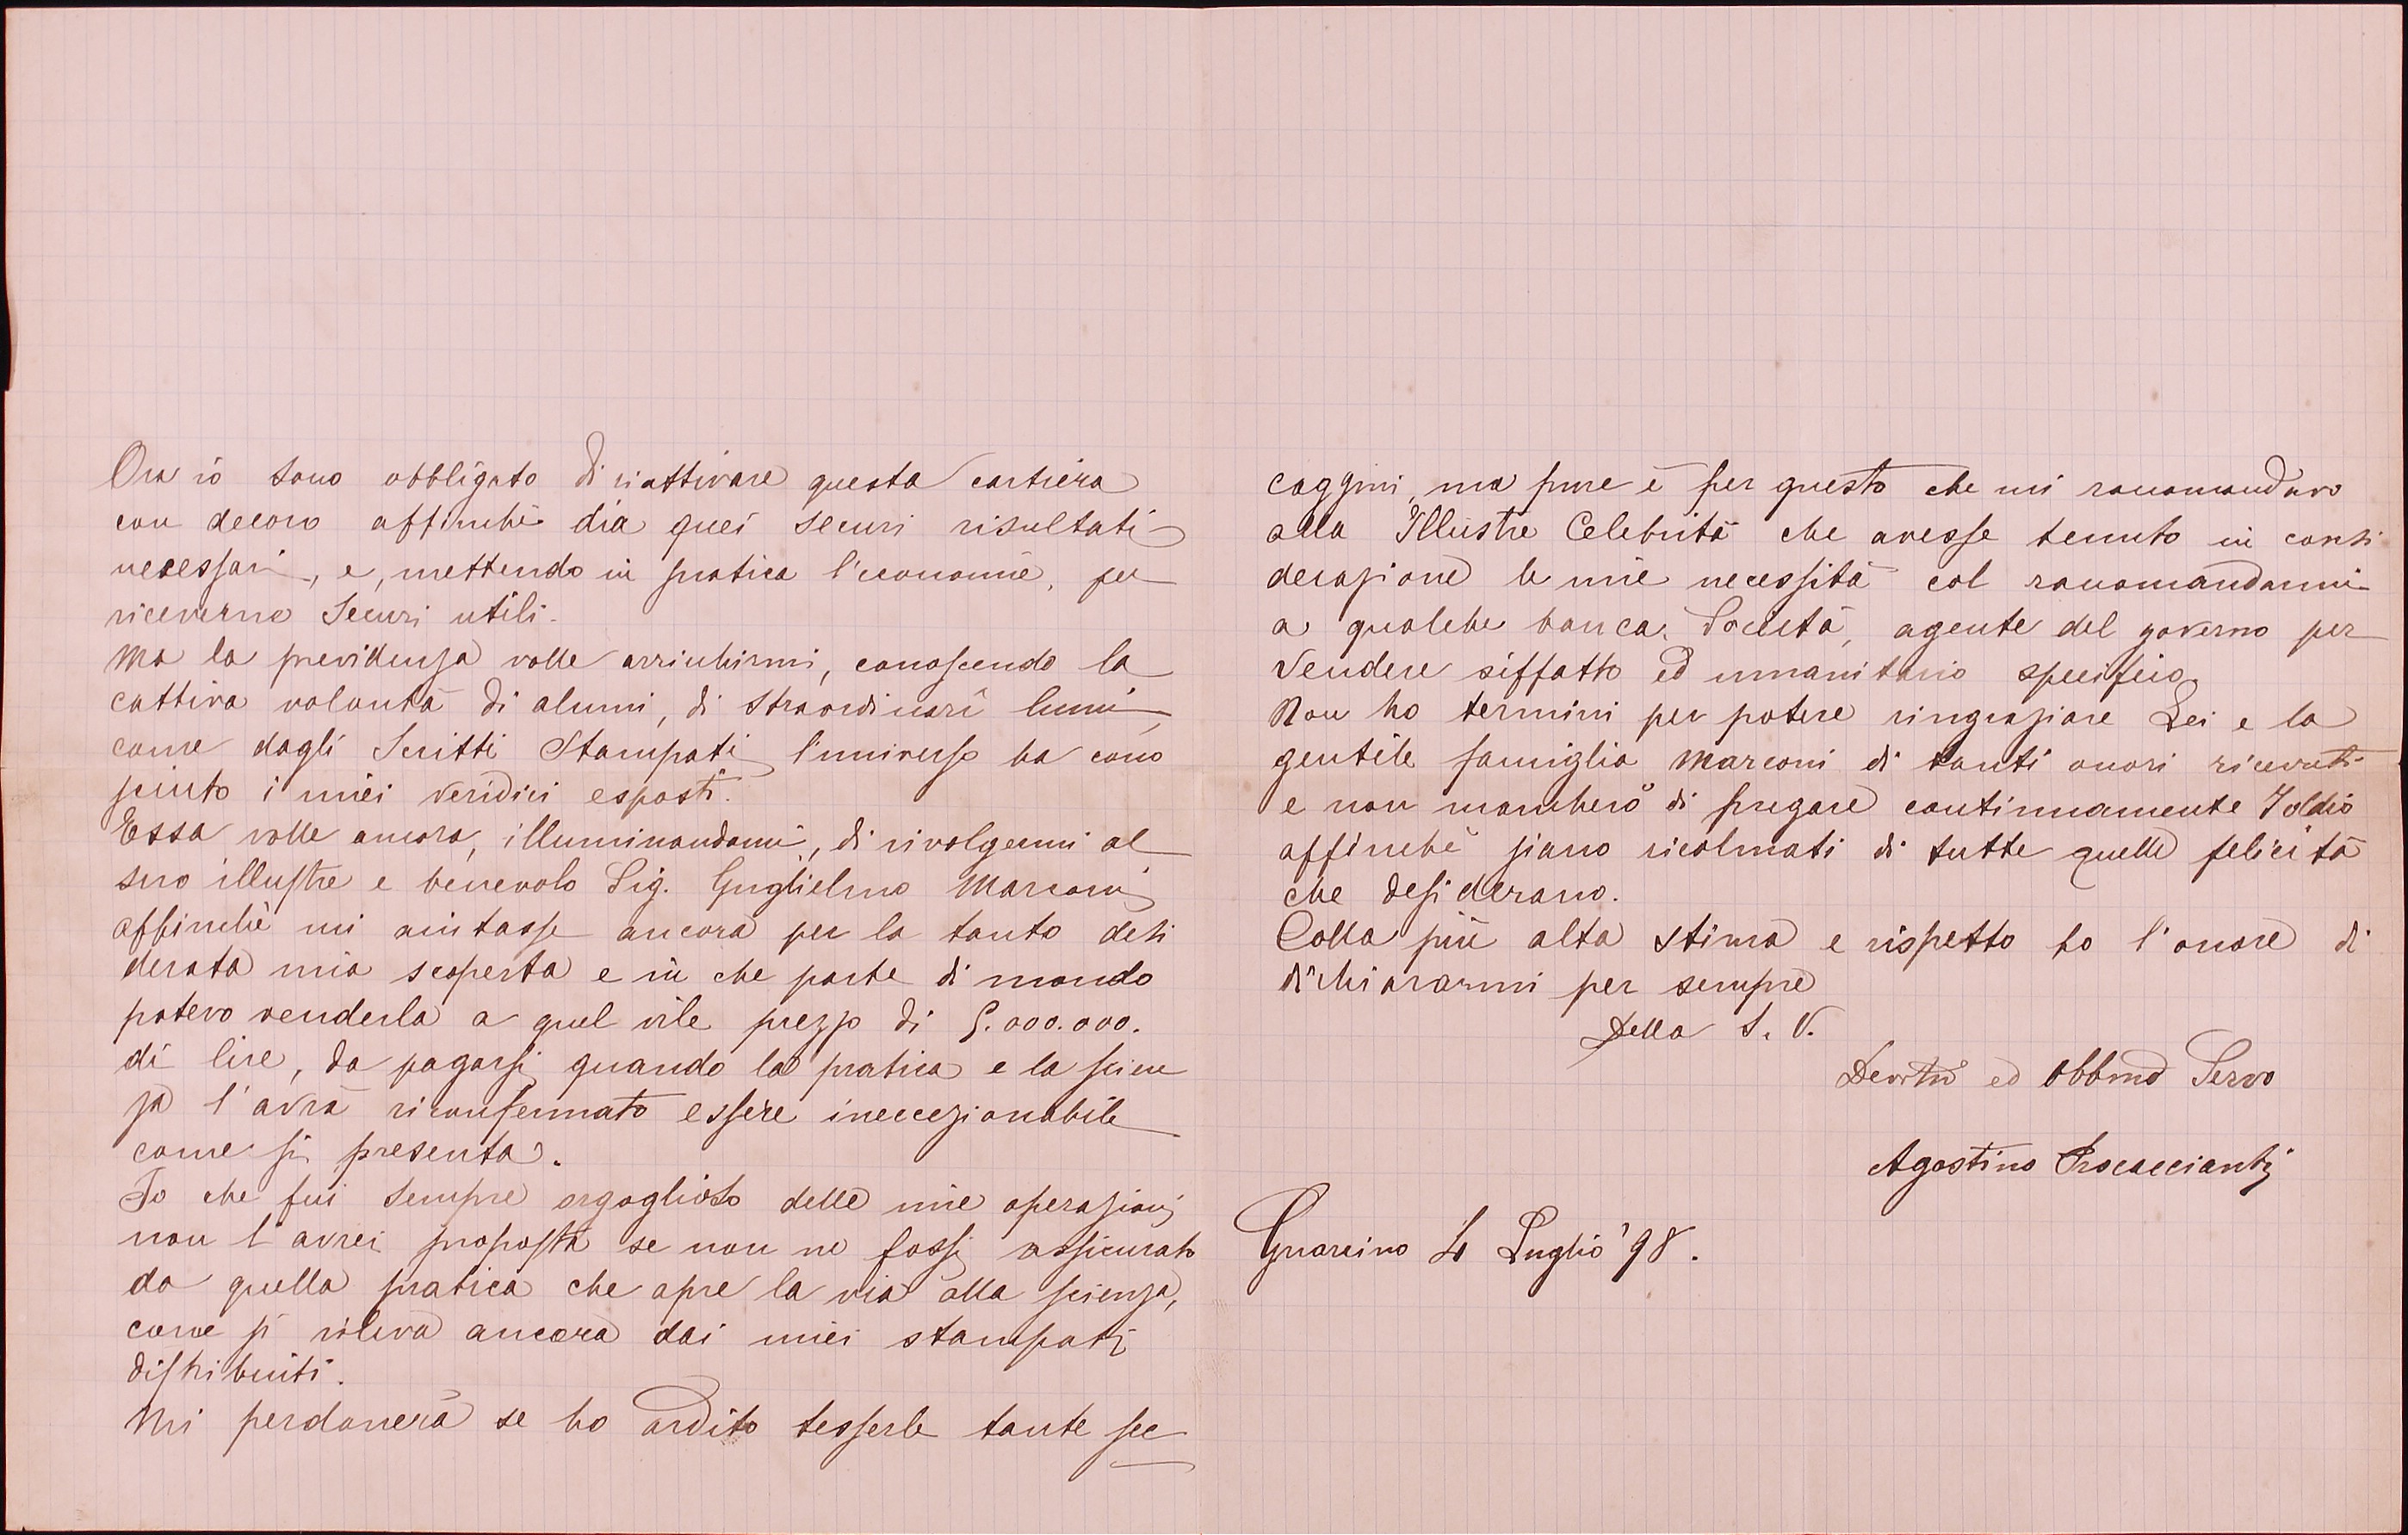 Ora io sono obbligato di riattivare questa cartiera
con decoro affinchè dia quei securi risultati
necessari, e, mettendo in pratica l'economie, per
riceverne securi utili.
Ma la previdenza volle arrichirmi, conoscendo la
cattiva volontà di alunni, di straordinarî lumi,
come dagli Scritti Stampati l'universo ha cono
sciuto i miei veridici esposti.
Essa volle ancora, illuminandomi, di rivolgermi al
suo illustre e benevolo Sig. Guglielmo Marconi
affinchè mi aiutasse ancora per la tanto desi
derata mia scoperta e in che parte di mondo
potevo venderla a quel vile prezzo di 5.000.000.
di lire, da pagarsi quando la pratica e la scien
za l'avrà riconfermato essere ineccezionabile
come si presenta.
Io che fui sempre orgoglioso delle mie operazioni
non l'avrei proposta se non ne fossi assicurato
da quella pratica che apre la via alla scienza,
come si rileva ancora dai miei stampati
distribuiti.
Mi perdonerà se ho ardito tesserle tante sec
caggini, ma pure è per questo che mi racomandavo
alla Illustre Celebrità che avesse tenuto in consi
derazione le mie necessità col racomandarmi
a qualche banca, Società, agente del governo per
vendere siffatto ed umanitario specifico.
Non ho termini per potere ringraziare Lei e la
gentile famiglia Marconi di tanti onori ricevuti
e non mancherò di pregare continuamente Iddio
affinchè siano ricolmati di tutte quelle felicità
che desiderano.
Colla più alta stima e rispetto ho l'onore di
dichiararmi per sempre
Della S. V.
Devtmo ed Obbmo Servo
Agostino Procaccianti
Guarcino 4 Luglio '98.